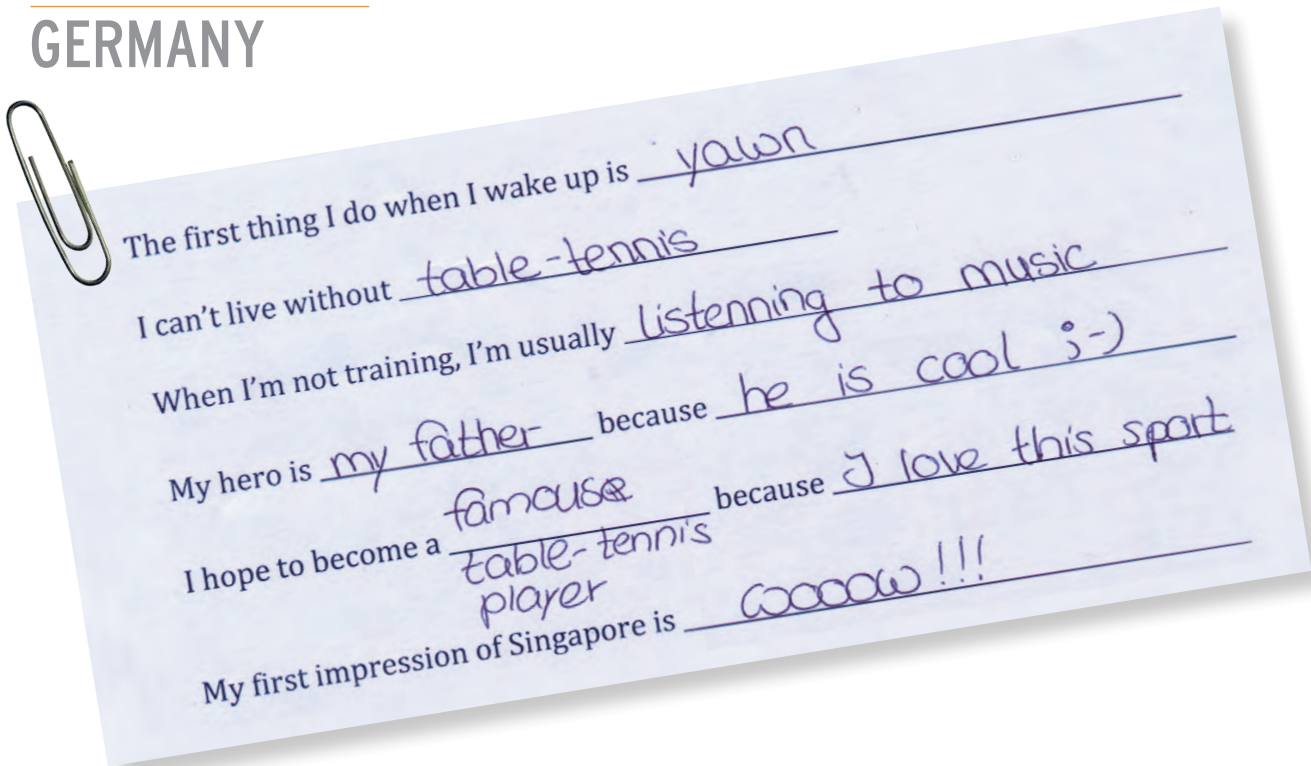 GERMANY
The first thing I do when I wake up is yawn
I can't live without table-tennis
When I'm not training, I'm usually listenning to music
My hero is my father because he is cool ;-)
I hope to become a famouse because I love this sport
table-tennis
player
My first impression of Singapore is woooow!!!